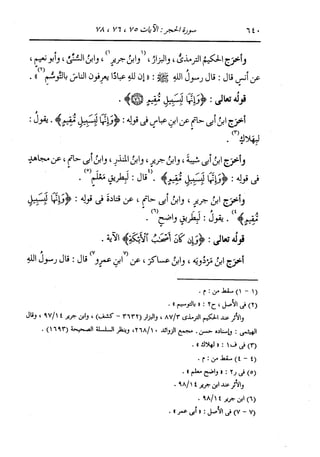 ٦٤٠ سورة الحجر : الآيات ٧٥ ، ٧٦ ، ٧٨
وأخرَج الحكيمُ الترمذيُّ ، والبزارُ ، (١)وابنُ جريرٍ(١) ، وابنُ السُّنيِّ ، وأبو نعيمٍ ،
عن أنسٍ قال : قال رسولُ اللهِ ﷺ : « إن للهِ عبادًا يعرِفون الناسَ بالتَّوسُّمِ(٢) » .
قولُه تعالى : ﴿ وَإِنَّهَا لَبِسَبِيلٍ مُّقِيمٍ ﴾ .
أخرَج ابنُ أبي حاتمٍ عن ابنِ عباسٍ في قولِه : ﴿ وَإِنَّهَا لَبِسَبِيلٍ مُّقِيمٍ ﴾ . يقولُ :
لبهلاكٍ(٣) .
وأخرَج ابنُ أبي شيبةَ ، وابنُ جريرٍ ، وابنُ المنذرِ ، وابنُ أبي حاتمٍ ، عن مجاهدٍ
في قولِه : ﴿ وَإِنَّهَا لَبِسَبِيلٍ مُّقِيمٍ ﴾ . (٤)قال : لبطريقٍ مَعْلَمٍ(٥) .
وأخرَج ابنُ جريرٍ ، وابنُ أبي حاتمٍ ، عن قتادةَ في قولِه : ﴿ وَإِنَّهَا لَبِسَبِيلٍ
مُّقِيمٍ ﴾(٤) . يقولُ : لبطريقٍ واضحٍ(٦) .
قولُه تعالى : ﴿ وَإِن كَانَ أَصْحَٰبُ ٱلْأَيْكَةِ ﴾ الآية .
أخرَج ابنُ مَرْدُويَه ، وابنُ عساكرَ ، عن (٧)ابنِ عمرٍو(٧) قال : قال رسولُ اللهِ
(١ - ١) سقط من : م .
(٢) في الأصل ، ح٢ : « بالتوسيم » .
والأثر عند الحكيم الترمذي ٨٧/٣ ، والبزار (٣٦٣٢ - كشف) ، وابن جرير ٩٧/١٤ ، وقال
الهيثمي : وإسناده حسن . مجمع الزوائد ٢٦٨/١٠ ، وينظر السلسلة الصحيحة (١٦٩٣) .
(٣) في ف١ : « لهلاك » .
(٤ - ٤) سقط من : م .
(٥) في ر٢ : « واضح معلم » .
والأثر عند ابن جرير ٩٨/١٤ .
(٦) ابن جرير ٩٨/١٤ .
(٧ - ٧) في الأصل : « أبي عمر » .